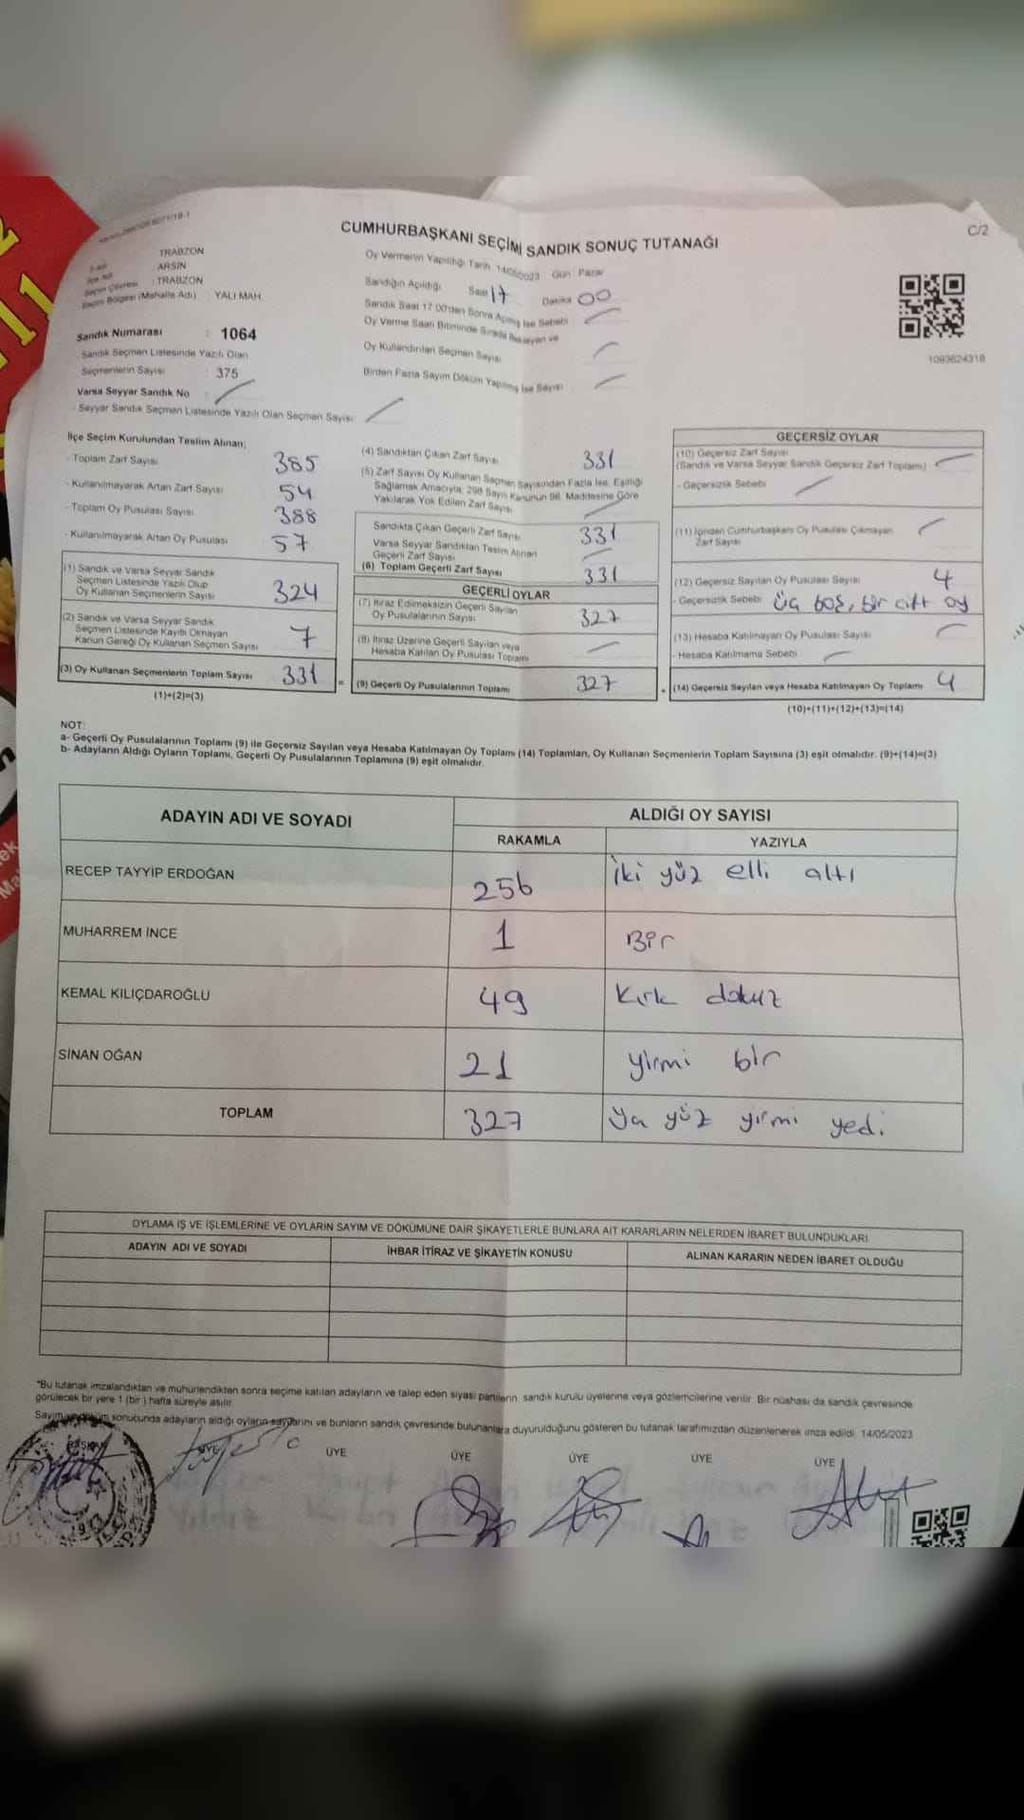 CUMHURBAŞKANI SEÇİMİ SANDIK SONUÇ TUTANAĞI
C/2
TRABZON
ARSİN
Seçim Çevresi : TRABZON
Seçim Bölgesi (Mahalle Adı) YALI MAH.
Oy Vermenin Yapıldığı Tarih: 14/05/2023 Gün: Pazar
Sandığın Açıldığı Saat 17 Dakika 00
Sandık Saat 17.00'den Sonra Açılmış İse Sebebi
Oy Verme Saati Bitiminde Sırada Bekleyen ve
Oy Kullandırılan Seçmen Sayısı
Birden Fazla Sayım Döküm Yapılmış İse Sayısı
1093624318
Sandık Numarası : 1064
Sandık Seçmen Listesinde Yazılı Olan
Seçmenlerin Sayısı : 375
Varsa Seyyar Sandık No
- Seyyar Sandık Seçmen Listesinde Yazılı Olan Seçmen Sayısı
İlçe Seçim Kurulundan Teslim Alınan;
- Toplam Zarf Sayısı 385
- Kullanılmayarak Artan Zarf Sayısı 54
- Toplam Oy Pusulası Sayısı 388
- Kullanılmayarak Artan Oy Pusulası 57
(1) Sandık ve Varsa Seyyar Sandık
Seçmen Listesinde Yazılı Olup
Oy Kullanan Seçmenlerin Sayısı 324
(2) Sandık ve Varsa Seyyar Sandık
Seçmen Listesinde Kaydı Olmayan
Kanun Gereği Oy Kullanan Seçmen Sayısı 7
(3) Oy Kullanan Seçmenlerin Toplam Sayısı 331 =
(1)+(2)=(3)
(4) Sandıktan Çıkan Zarf Sayısı 331
(5) Zarf Sayısı Oy Kullanan Seçmen Sayısından Fazla İse, Eşitliği
Sağlamak Amacıyla, 298 Sayılı Kanunun 98. Maddesine Göre
Yakılarak Yok Edilen Zarf Sayısı
Sandıkta Çıkan Geçerli Zarf Sayısı 331
Varsa Seyyar Sandıktan Teslim Alınan
Geçerli Zarf Sayısı
(6) Toplam Geçerli Zarf Sayısı 331
GEÇERLİ OYLAR
(7) İtiraz Edilmeksizin Geçerli Sayılan
Oy Pusulalarının Sayısı 327
(8) İtiraz Üzerine Geçerli Sayılan veya
Hesaba Katılan Oy Pusulası Toplamı
(9) Geçerli Oy Pusulalarının Toplamı 327 +
GEÇERSİZ OYLAR
(10) Geçersiz Zarf Sayısı
(Sandık ve Varsa Seyyar Sandık Geçersiz Zarf Toplamı)
- Geçersizlik Sebebi
(11) İçinden Cumhurbaşkanı Oy Pusulası Çıkmayan
Zarf Sayısı
(12) Geçersiz Sayılan Oy Pusulası Sayısı 4
- Geçersizlik Sebebi üç boş, bir çift oy
(13) Hesaba Katılmayan Oy Pusulası Sayısı
- Hesaba Katılmama Sebebi
(14) Geçersiz Sayılan veya Hesaba Katılmayan Oy Toplamı 4
(10)+(11)+(12)+(13)=(14)
NOT:
a- Geçerli Oy Pusulalarının Toplamı (9) ile Geçersiz Sayılan veya Hesaba Katılmayan Oy Toplamı (14) Toplamları, Oy Kullanan Seçmenlerin Toplam Sayısına (3) eşit olmalıdır. (9)+(14)=(3)
b- Adayların Aldığı Oyların Toplamı, Geçerli Oy Pusulalarının Toplamına (9) eşit olmalıdır.
ADAYIN ADI VE SOYADI
ALDIĞI OY SAYISI
RAKAMLA YAZIYLA
RECEP TAYYİP ERDOĞAN 256 İki yüz elli altı
MUHARREM İNCE 1 Bir
KEMAL KILIÇDAROĞLU 49 Kırk dokuz
SİNAN OĞAN 21 yirmi bir
TOPLAM 327 Üç yüz yirmi yedi
OYLAMA İŞ VE İŞLEMLERİNE VE OYLARIN SAYIM VE DÖKÜMÜNE DAİR ŞİKAYETLERLE BUNLARA AİT KARARLARIN NELERDEN İBARET BULUNDUKLARI
ADAYIN ADI VE SOYADI İHBAR İTİRAZ VE ŞİKAYETİN KONUSU ALINAN KARARIN NEDEN İBARET OLDUĞU
"Bu tutanak imzalandıktan ve mühürlendikten sonra seçime katılan adayların ve talep eden siyasi partilerin, sandık kurulu üyelerine veya gözlemcilerine verilir. Bir nüshası da sandık çevresinde
görülecek bir yere 1 (bir) hafta süreyle asılır.
Sayım ve döküm sonucunda adayların aldığı oyların sayılarını ve bunların sandık çevresinde bulunanlara duyurulduğunu gösteren bu tutanak tarafımızdan düzenlenerek imza edildi. 14/05/2023
ÜYE ÜYE ÜYE ÜYE ÜYE